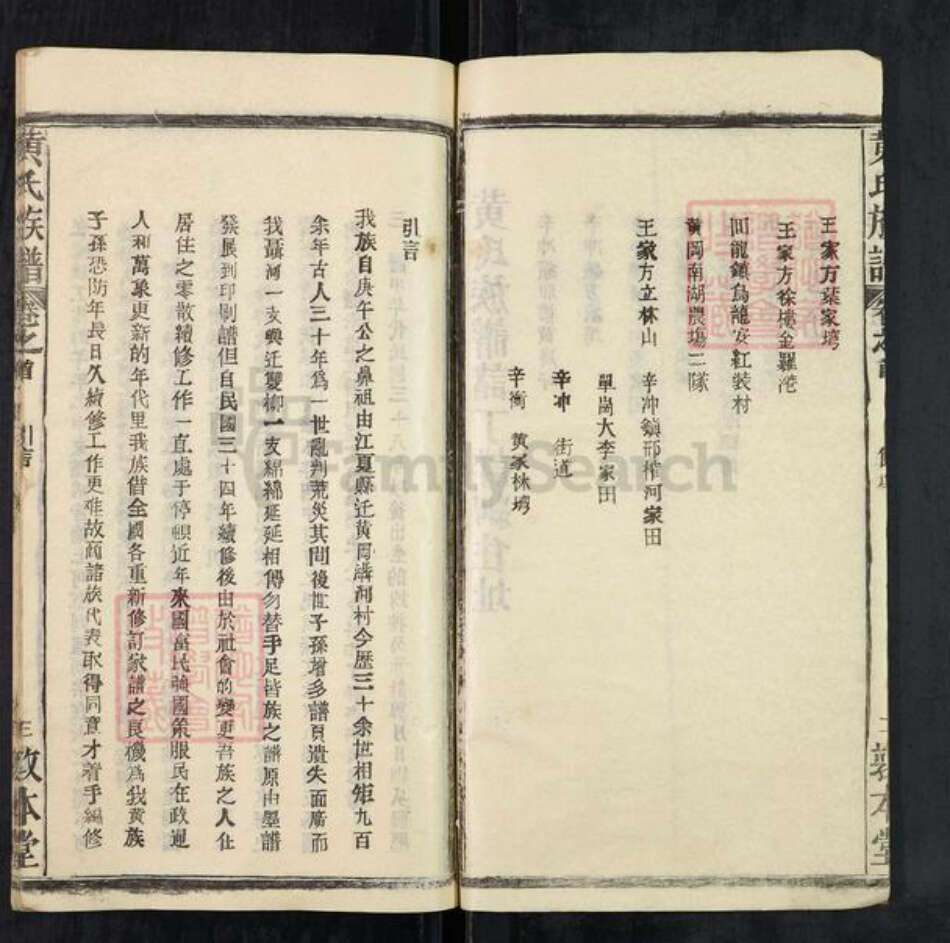 王家方葉家塆
王家方徐塆金羅港
回龍鎮烏龍安紅裝村
黃岡南湖農場三隊
王家方立林山 辛冲鎮邢榨河家田
單崗大李家田
辛冲 街道
辛衝 黃家林塆
引言
我族自庚午公之鼻祖由江夏縣迁黄岡溝河村今歷三十余世相矩九百
余年古人三十年為一世亂判荒災其間後世子孫增多譜頁遺失面廣而
我溝河一支與迁雙柳一支綿綿延延相傳勿替手足皆族之譜原由墨譜
發展到印刷譜但自民國三十四年續修後由於社會的變更吾族之人住
居住之零散續修工作一直處于停頓近年來國富民強國策服民在政通
人和萬象更新的年代里我族借全國各重新修訂家譜之良機為我黄族
子孫恐防年長日久續修工作更难故商諸族代表取得同意才着手編修
黃氏族譜
卷之首
引言
三
敦本堂
FamilySearch